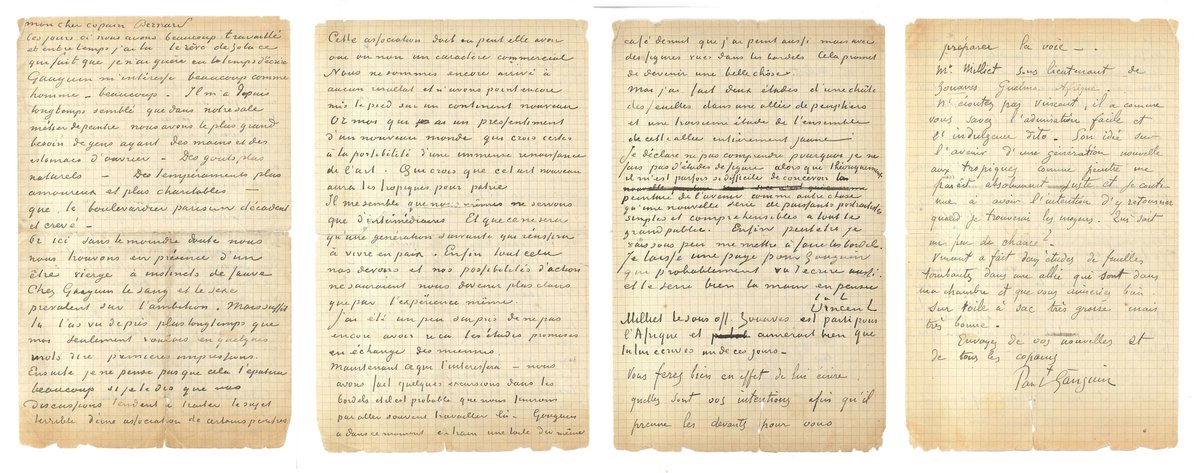 mon cher copain Bernard
Ces jours ci nous avons beaucoup travaillé
et entretemps j'ai lu le rêve de Zola ce
qui fait que je n'ai guère eu le temps d'écrire
Gauguin m'intéresse beaucoup comme
homme – beaucoup – Il m'a depuis
longtemps semblé que dans notre sale
métier de peintre nous avons le plus grand
besoin de gens ayant des mains et des
estomacs d'ouvrier – Des gouts plus
naturels – Des tempéraments plus
amoureux et plus charitables –
que le boulevardier parisien décadent
et crevé –
Or ici sans le moindre doute nous
nous trouvons en présence d'un
être vierge à instincts de sauvage
Chez Gauguin le sang et le sexe
prévalent sur l'ambition. Mais suffit
tu l'as vu de près plus longtemps que
moi seulement voulais en quelques
mots dire premières impressions.
Ensuite je ne pense pas que cela t'épatera
beaucoup si je te dis que nos
discussions tendent à traiter le sujet
terrible d'une association de certains peintres
Cette association doit ou peut elle avoir
oui ou non un caractère commercial
Nous ne sommes encore arrivé à
aucun résultat et n'avons point encore
mis le pied sur un continent nouveau
Or moi que ai un présentiment
d'un nouveau monde qui crois certes
à la possibilité d'une immense renaissance
de l'art. Qui crois que cet art nouveau
aura les tropiques pour patrie
Il me semble que nous mêmes ne servons
que d'intermédiaires Et que ce ne sera
qu'une génération suivante qui réussira
à vivre en paix. Enfin tout cela
nos devoirs et nos possibilités d'action
ne sauraient nous devenir plus clairs
que par l'expérience même.
j'ai été un peu surpris de ne pas
encore avoir reçu les études promises
en échange des miennes
Maintenant ce qui t'intéressera – nous
avons fait quelques excursions dans les
bordels et il est probable que nous finirons
par aller souvent travailler là. Gauguin
a dans ce moment en train une toile du même
café de nuit que j'ai peint aussi mais avec
des figures vues dans les bordels Cela promet
de devenir une belle chôse.
Moi j'ai fait deux études d'une chute
des feuilles dans une allée de peupliers
et une troisieme étude de l'ensemble
de cette allée entièrement jaune
Je déclare ne pas comprendre pourquoi je ne
fais pas d'études de figure alors que théoriquement
il m'est parfois si difficile de concevoir la
peinture de l'avenir comme autre chose
qu'une nouvelle serie de puissants portraitistes
simples et compréhensibles à tout le
grand public. Enfin peutêtre je
vais sous peu me mettre à faire les bordels.
Je laisse une page pour Gauguin
qui probablement va t'écrire aussi.
et te serre bien la main en pensée
t. à t.
Vincent
Milliet le sous off. Zouaves est parti pour
l'Afrique et aimerait bien que
tu lui écrives un de ces jours –
Vous ferez bien en effet de lui écrire
quelles sont vos intentions afin qu'il
prenne les devants pour vous
préparer la voie –.
Mr Milliet sous lieutenant de
Zouaves Guelma Afrique.
N'écoutez pas Vincent, il a comme
vous savez l'admiration facile et
l'indulgence dito. – Son idée sur
l'avenir d'une génération nouvelle
aux tropiques comme peintre me
parait absolument juste et je conti-
nue à avoir l'intention d'y retourner
quand je trouverai les moyens. Qui sait
un peu de chance?
Vincent a fait deux études de feuilles
tombantes dans une allée qui sont dans
ma chambre et que vous aimeriez bien
Sur toile à sac très grosse mais
très bonne.
Envoyez de vos nouvelles et
de tous les copains
Paul Gauguin